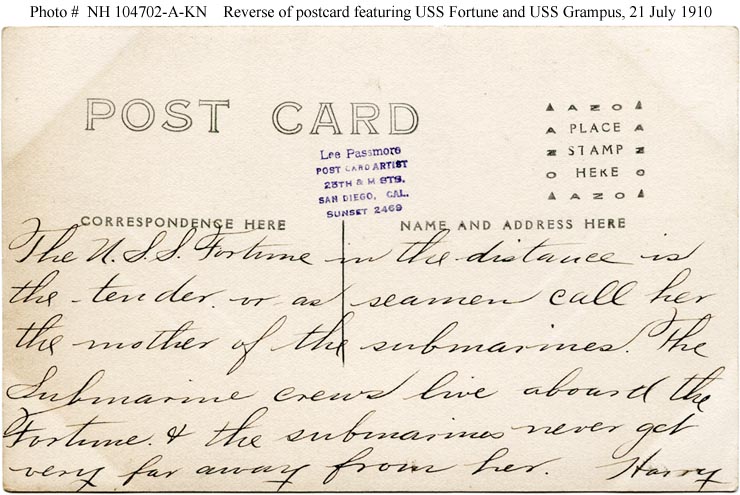 Photo # NH 104702-A-KN Reverse of postcard featuring USS Fortune and USS Grampus, 21 July 1910
POST CARD
▲ A Z O ▲
A PLACE A
Z STAMP Z
O HERE O
▲ A Z O ▲
Lee Passmore
POST CARD ARTIST
25TH & M STS.
SAN DIEGO, CAL.
SUNSET 2469
CORRESPONDENCE HERE
NAME AND ADDRESS HERE
The U.S.S. Fortune in the distance is
the tender or as seamen call her
the mother of the submarines. The
Submarine crews live aboard the
Fortune & the submarines never get
very far away from her. Harry